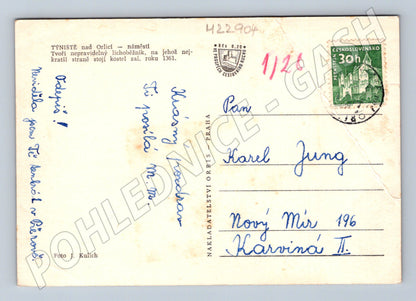 H22904
TÝNIŠTĚ nad Orlicí — náměstí
Tvoří nepravidelný lichoběžník, na jehož nej-
kratší straně stojí kostel zal. roku 1361.
1/26
ČESKOSLOVENSKO
30h
Odepiš!
Viděla jsem Tě
Krásný pozdrav
Ti posílá M. M.
Foto J. Kulich
NAKLADATELSTVÍ ORBIS - PRAHA
Pan
Karel Jung
Nový Mír 196
Karviná II.
POHLEDNICE - GASH